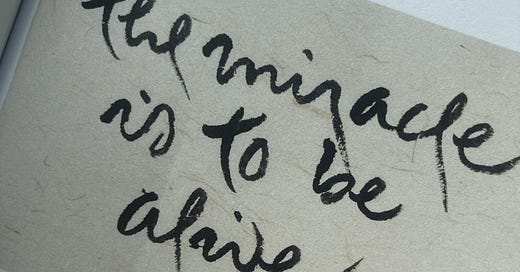 the miracle
is to be
alive